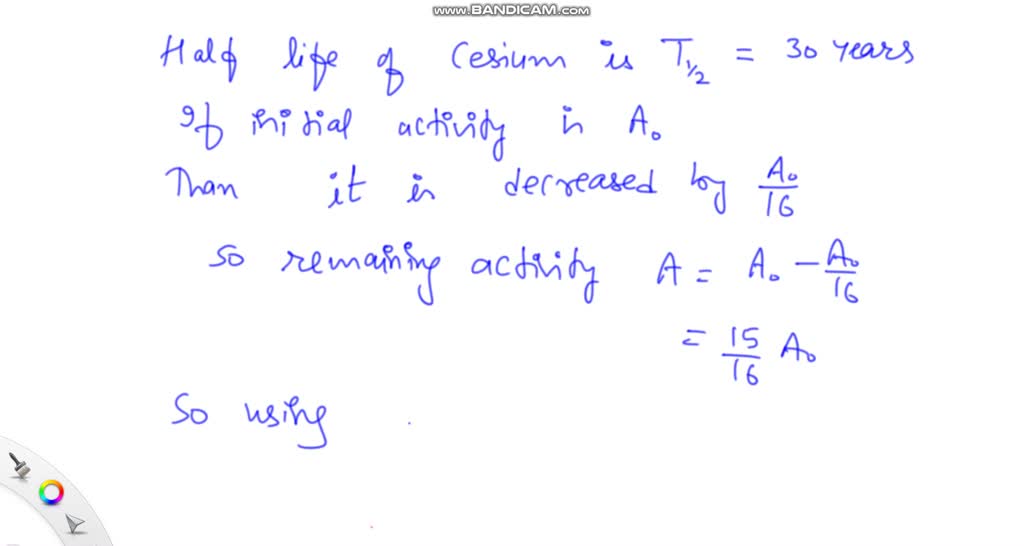 www.BANDICAM.com
Half life of Cesium is T1/2 = 30 years
If initial activity is A₀
Than it is decreased by A₀/16
So remaining activity A = A₀ - A₀/16
= 15/16 A₀
So using